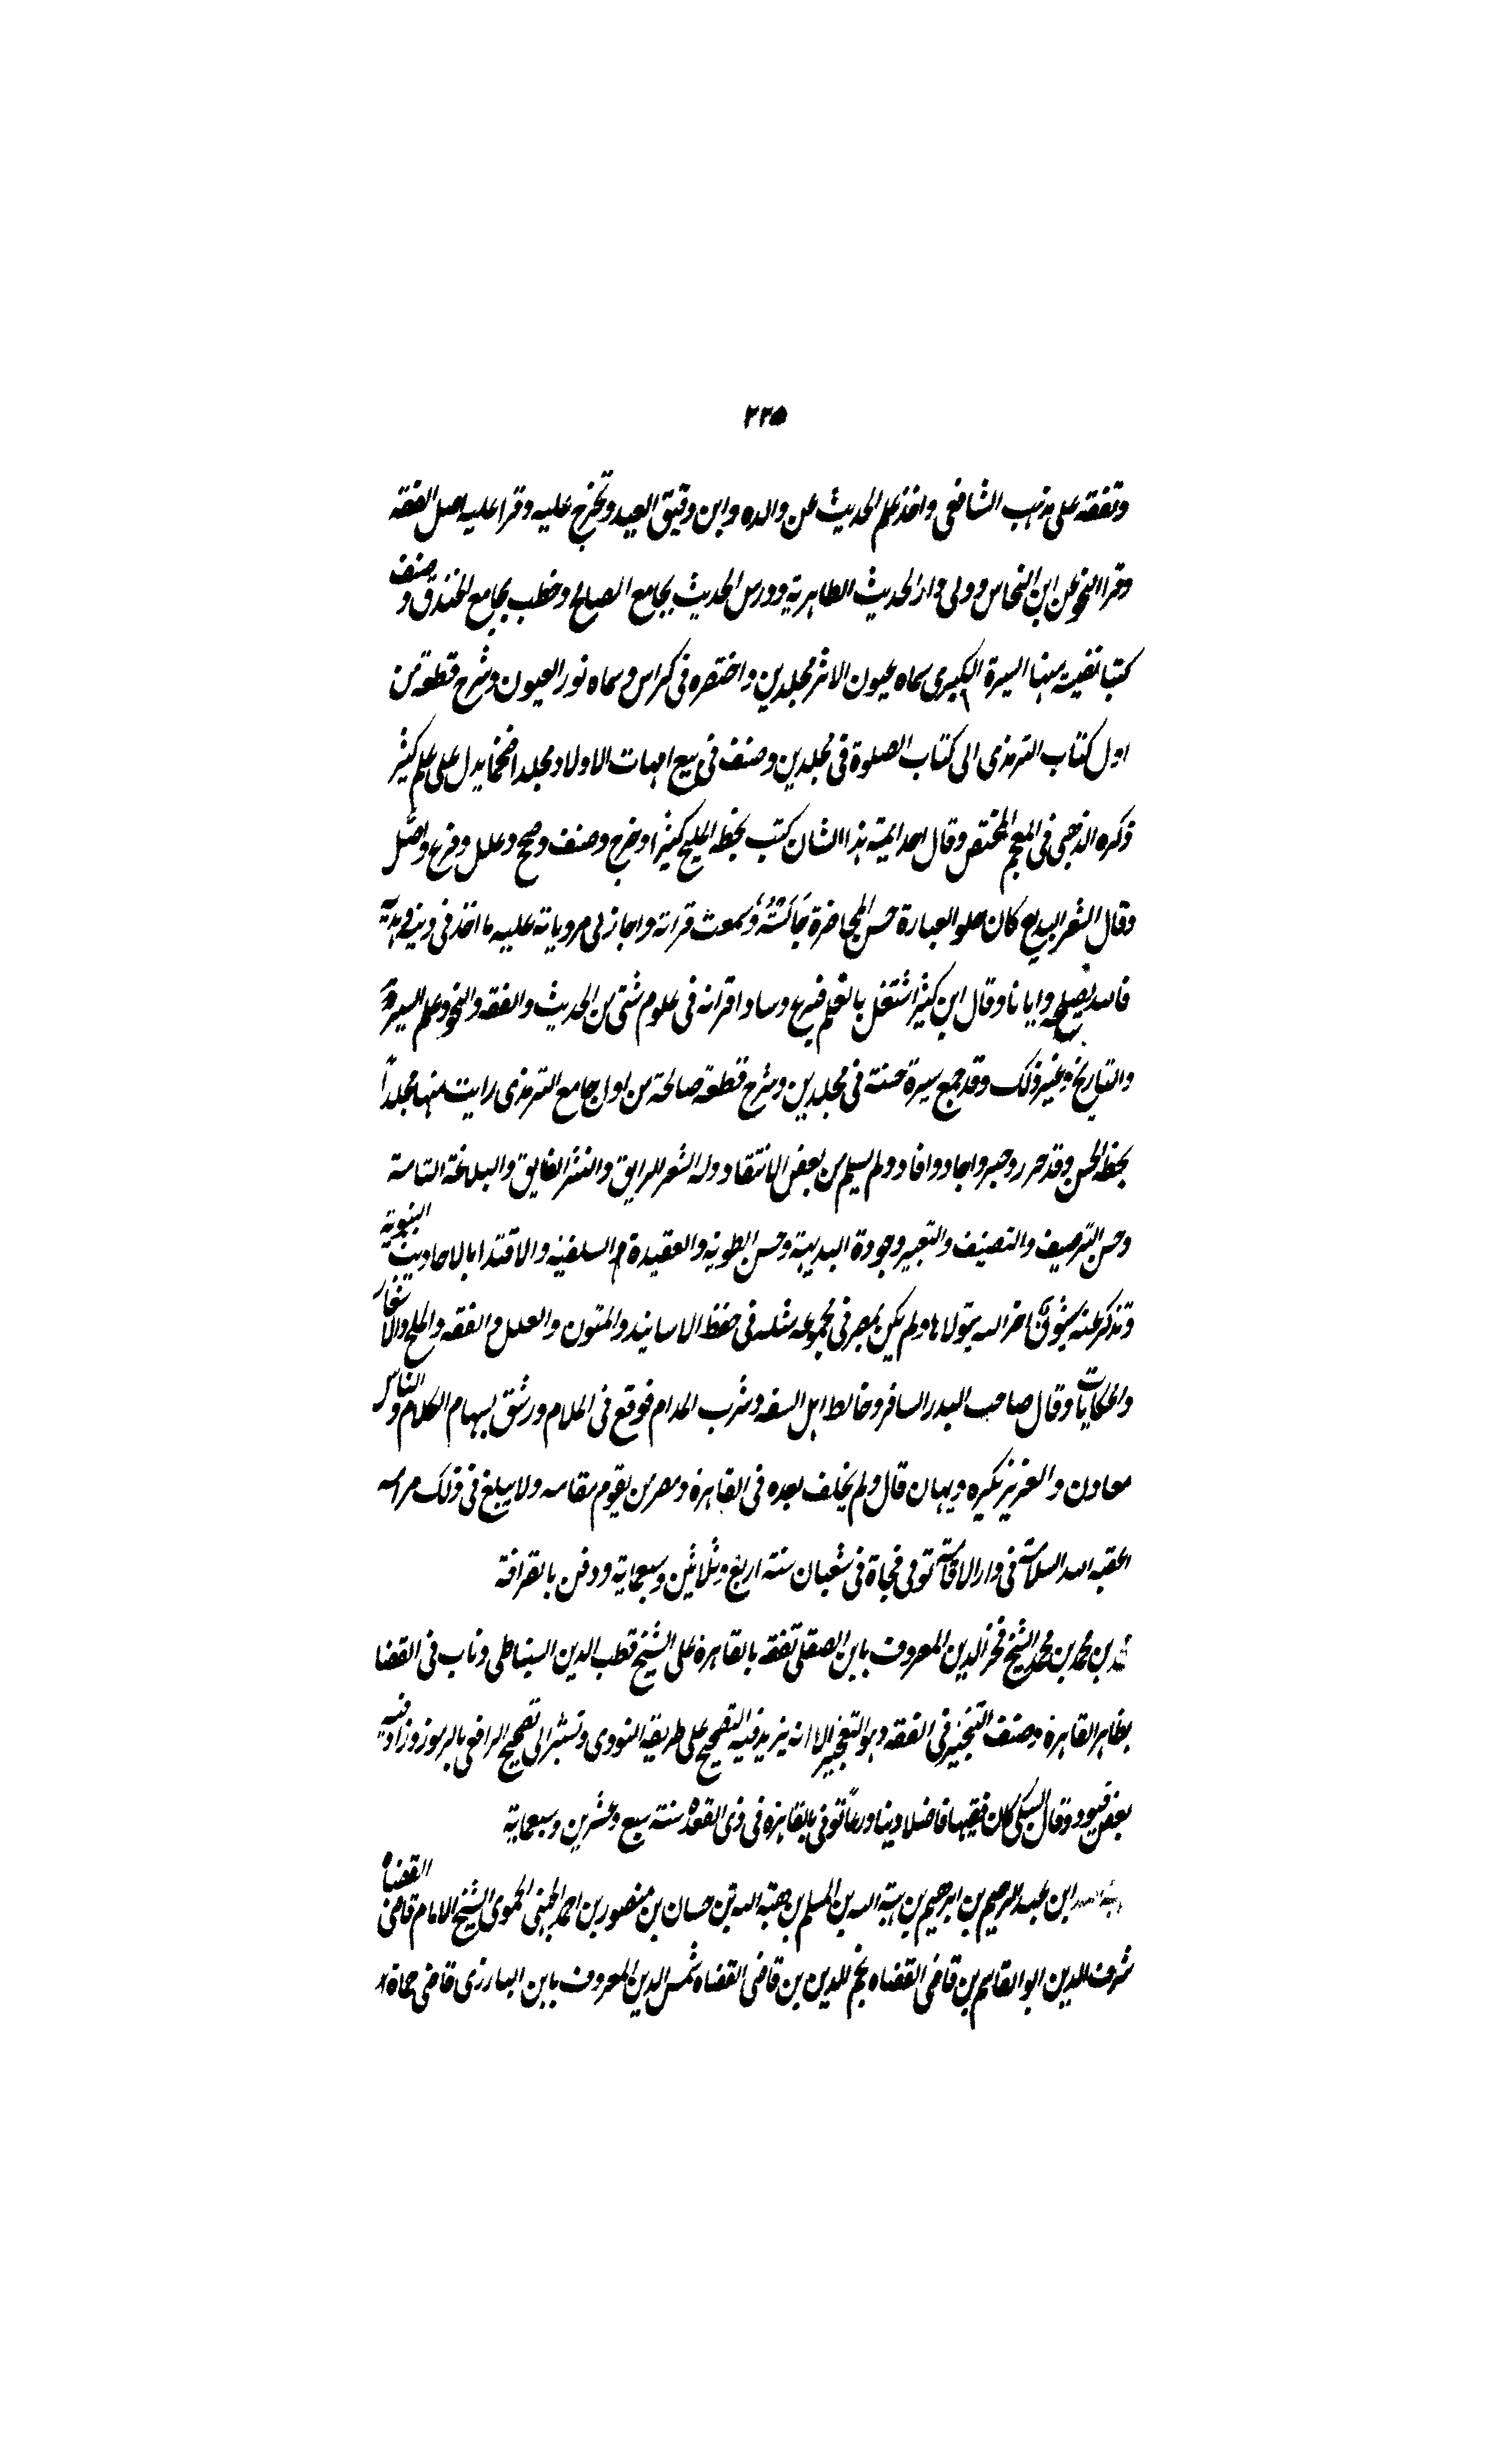 ٢٢٥
وتفقه على مذهب الشافعى واخذ علم الحديث عن والده وابن دقيق العيد وتخرج عليه وقرا عليه اصل الفقه
وقرا النحو عن ابن النحاس وولى دار الحديث الظاهرية ودرس الحديث بجامع الصالح وخطب بجامع الخندق وصنف
كتبا نفيسة منها السيرة الكبيرى سماه عيون الاثر مجلدين واختصره فى كراس وسماه نور العيون وشرح قطعة من
اول كتاب الترمذى الى كتاب الصلوة فى مجلدين وصنف فى بيع امهات الاولاد مجلدا ضخما يدل على علم كثير
ذكره الذهبى فى المعجم المختص وقال احد ايمة هذا الشان كتب بخطه المليح كثيرا وخرج وصنف وصحح وعلل وفرع واصّل
وقال الشعر البديع كان حلو العبارة حسن المحاضرة جالسته وسمعت قراته واجاز لى مروياته عليه ماخذ فى دينه وهديه
فالله يصلحه وايانا وقال ابن كثير اشتغل بالعلم فبرع وساد اقرانه فى علوم شتى من الحديث والفقه والنحو وعلم السيرة
والتاريخ وغير ذلك وقد جمع سيرة حسنة فى مجلدين وشرح قطعة صالحة من اول جامع الترمذى رايت منها مجلداً
بخطه الحسن وقد حرر وحبر واجاد وافاد ولم يسلم من بعض الانتقاد وله الشعر الرايق والنثر الفايق والبلاغة التامة
وحسن الترصيف والتصنيف والتعبير وجودة البديهة وحسن الطوية والعقيدة السلفية والاقتدا بالاحاديث النبوية
وتذكر عنه شوون اخر الله يتولاها ولم يكن بمصر فى مجموعه مثله فى حفظ الاسانيد والمتون والعلل والفقه والملح والاشعار
والحكايات وقال صاحب البدر السافر وخالط اهل السفه وشرب المدام فوقع فى الملام ورشق بسهام الكلام والناس
معادن والعزيز يكره ويهان قال ولم يخلف بعده فى القاهرة ومصر من يقوم مقامه ولا يبلغ فى ذلك مرامه
اعقبه الله السلامة فى دار الاقامة توفى فجاة فى شعبان سنة اربع وثلاثين وسبعماية ودفن بالقرافة
محمد بن محمد بن محمد الشيخ فخر الدين المعروف بابن الصقلى تفقه بالقاهرة على الشيخ قطب الدين السنباطى وناب فى القضا
بظاهر القاهرة وصنف التنجيز فى الفقه وهو التعجيز الا انه يزيد فيه التصحيح على طريقة النووى وتشير الى تصحيح الرافعى بالرموز وزاد فيه
بعض قيود وقال السبكى كان فقيها فاضلا دينا ورعاً توفى بالقاهرة فى ذى القعدة سنة سبع وعشرين وسبعماية
هبة الله ابن عبد الرحيم بن ابرهيم بن هبة الله بن المسلم بن هبة الله بن حسان بن منصور بن احمد الجهنى الحموى الشيخ الامام قاضى القضاة
شرف الدين ابو القاسم بن قاضى القضاه نجم الدين بن قاضى القضاه شمس الدين المعروف بابن البارزى قاضى حماة